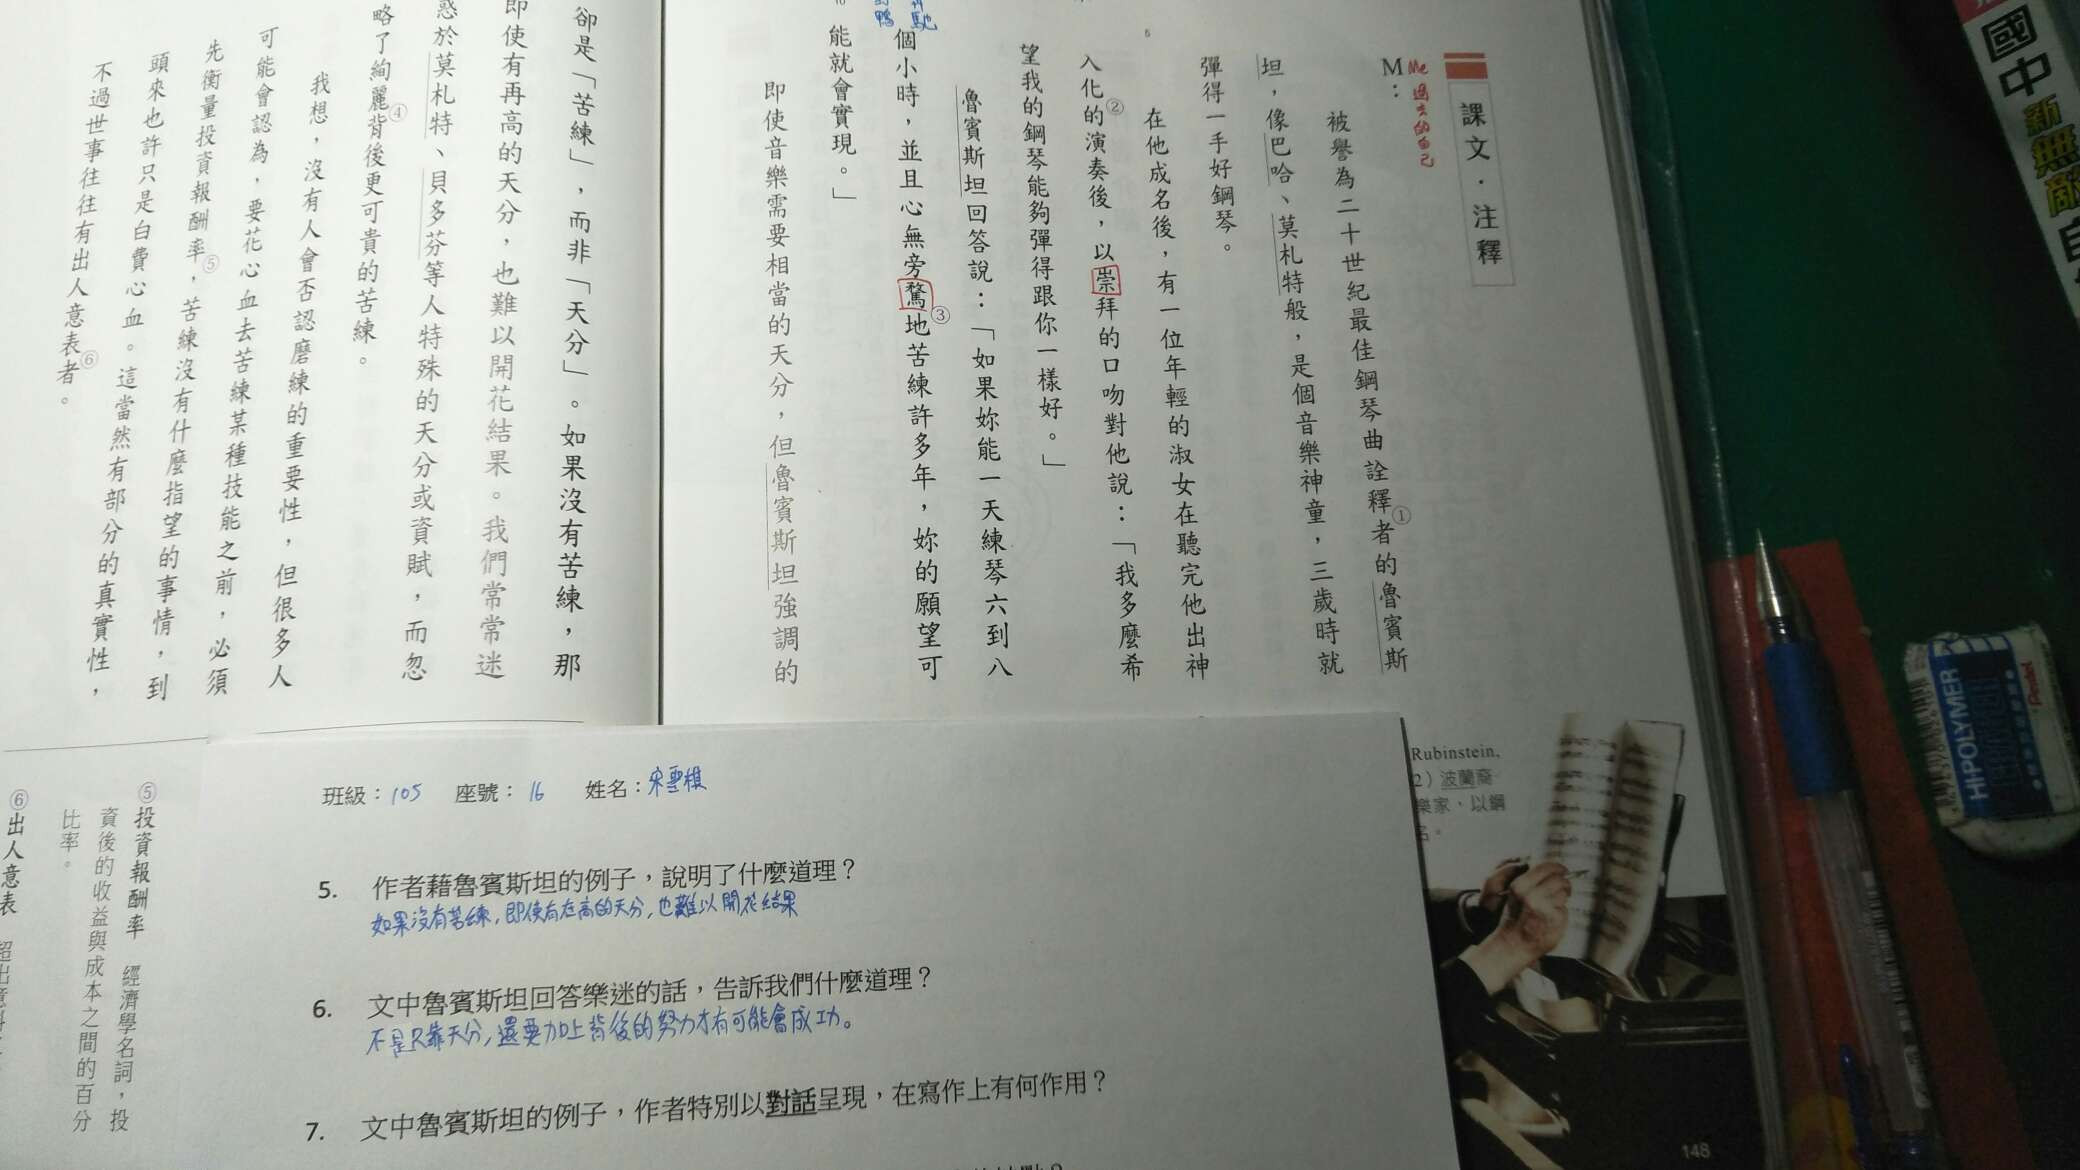 課文‧注釋
M：
Me 過去的自己
被譽為二十世紀最佳鋼琴曲詮釋①者的魯賓斯
坦，像巴哈、莫札特般，是個音樂神童，三歲時就
彈得一手好鋼琴。
在他成名後，有一位年輕的淑女在聽完他出神
入化②的演奏後，以崇拜的口吻對他說：「我多麼希
望我的鋼琴能夠彈得跟你一樣好。」
魯賓斯坦回答說：「如果妳能一天練琴六到八
個小時，並且心無旁騖③地苦練許多年，妳的願望可
能就會實現。」
即使音樂需要相當的天分，但魯賓斯坦強調的
卻是「苦練」，而非「天分」。如果沒有苦練，那
即使有再高的天分，也難以開花結果。我們常常迷
惑於莫札特、貝多芬等人特殊的天分或資賦，而忽
略了絢麗④背後更可貴的苦練。
我想，沒有人會否認磨練的重要性，但很多人
可能會認為，要花心血去苦練某種技能之前，必須
先衡量投資報酬率⑤，苦練沒有什麼指望的事情，到
頭來也許只是白費心血。這當然有部分的真實性，
不過世事往往有出人意表⑥者。
⑤投資報酬率 經濟學名詞，投
資後的收益與成本之間的百分
比率。
⑥出人意表
Rubinstein,
2）波蘭裔
樂家，以鋼
名。
148
班級：105 座號：16 姓名：宋聖棋
5. 作者藉魯賓斯坦的例子，說明了什麼道理？
如果沒有苦練，即使有在高的天分，也難以開花結果
6. 文中魯賓斯坦回答樂迷的話，告訴我們什麼道理？
不是只靠天分，還要加上背後的努力才有可能會成功。
7. 文中魯賓斯坦的例子，作者特別以對話呈現，在寫作上有何作用？
國中
新無敵自
HI-POLYMER
Pentel